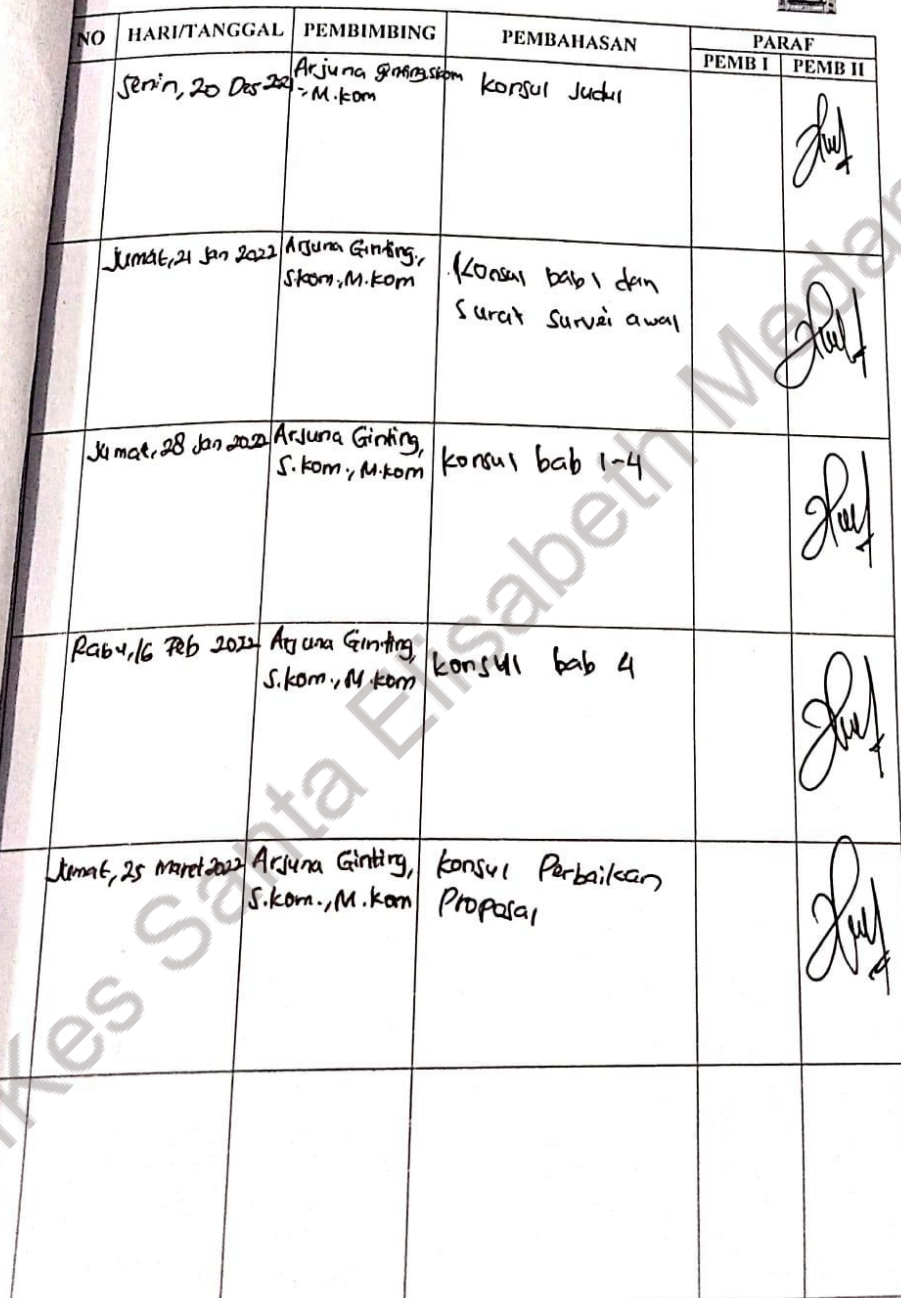 NO HARI/TANGGAL PEMBIMBING PEMBAHASAN PARAF
PEMB I PEMB II
Senin, 20 Des 2021 Arjuna Ginting, S.kom
., M.kom konsul Judul
Jumat, 21 Jan 2022 Arjuna Ginting.,
S.kom., M.kom Konsul bab 1 dan
Surat Survei awal
Jumat, 28 Jan 2022 Arjuna Ginting,
S.kom., M.kom konsul bab 1-4
Rabu, 16 Feb 2022 Arjuna Ginting,
S.kom., M.kom konsul bab 4
Jumat, 25 Maret 2022 Arjuna Ginting, konsul Perbaikan
S.kom., M.kom Proposal
Kes Santa Elisabeth Medan